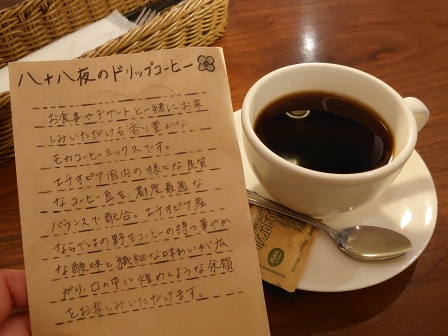 八十八夜のドリップコーヒー
お食事やデザートと一緒にお楽
しみいただける香り豊かな
モカコーヒーミックスです。
エチオピア国内の様々な良質
なコーヒー豆を、都度最適な
バランスで配合。エチオピア産
ならではの野生コーヒーの持つ華やか
な酸味と繊細な味わいが広
がり、口の中に煌めくような余韻
をお楽しみいただけます。